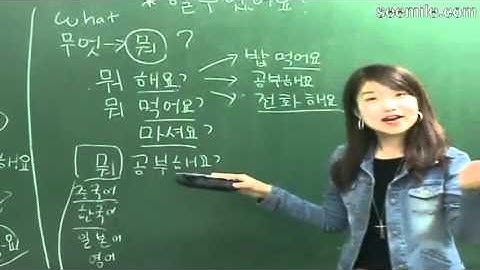 seemile.com
what
무엇→뭐 ?
뭐 해요?
밥 먹어요
공부해요
전화해요
뭐 먹어요?
마셔요?
뭐 공부해요?
중국어
한국어
일본어
영어